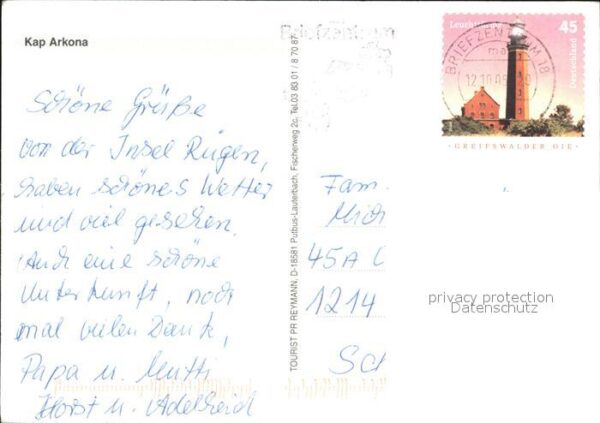 Kap Arkona
Schöne Grüße
von der Insel Rügen,
haben schönes Wetter
und viel gesehen.
Auch eine schöne
Unterkunft, noch
mal vielen Dank,
Papa u. Mutti
Horst u. Adelheid
TOURIST PR REYMANN, D-18581 Putbus-Lauterbach, Fischerweg 2c, Tel.03 83 01 / 8 70 87
Briefzentrum
Leuchttürme
45
Deutschland
BRIEFZENTRUM 18
GREIFSWALDER OIE
Fam.
45A
1214
privacy protection
Datenschutz